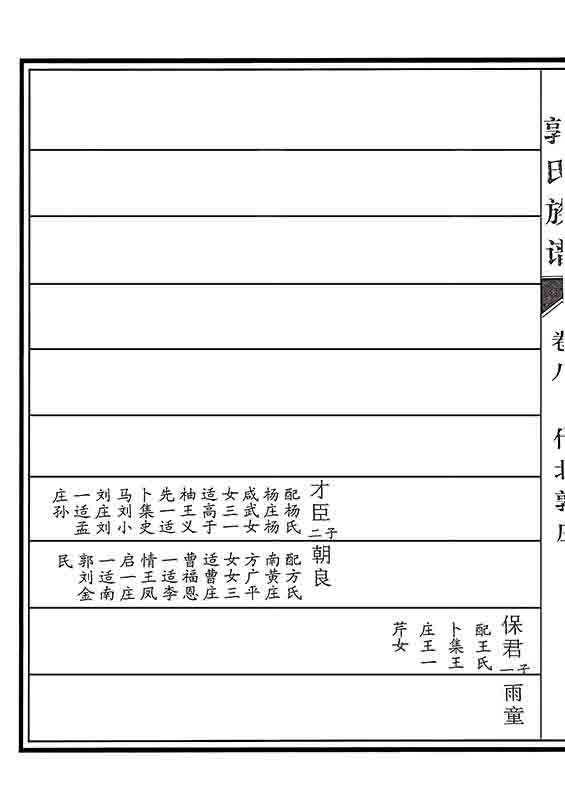 郭氏族谱
卷八
北郭庄
才臣
二子
配杨氏
杨庄杨
咸武女
女三一
适高于
柚王义
先一适
卜集史
马刘小
刘庄刘
一适孟
庄孙
朝良
配方氏
南黄庄
方广平
女女三
适曹庄
曹福恩
一适李
情王凤
启一庄
一适南
郭刘金
民
保君
一子
配王氏
卜集王
庄王一
芹女
雨童